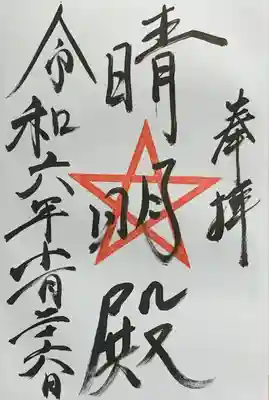 奉拝
晴明殿
令和六年十一月二十六日